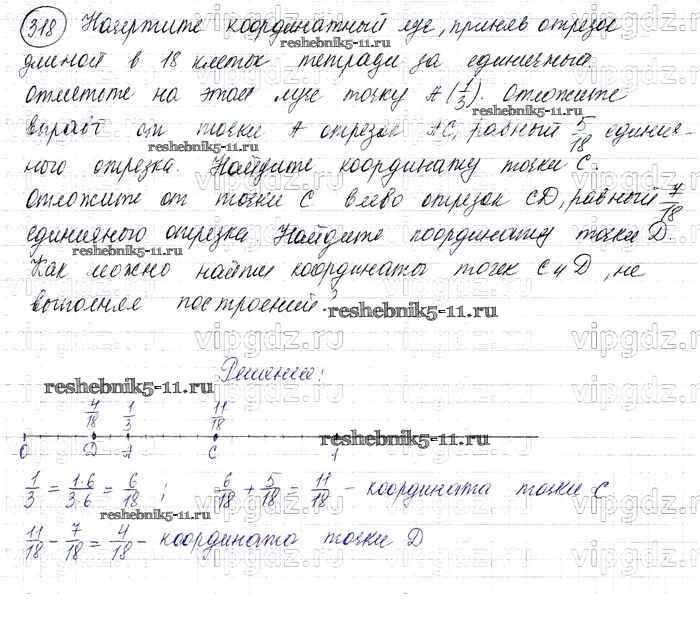 318 Начертите координатный луч, приняв отрезок
reshebnik5-11.ru
длиной в 18 клеток тетради за единичный.
Отметьте на этом луче точку A(1/3). Отложите
reshebnik5-11.ru
вправо от точки A отрезок AC, равный 5/18 единич-
reshebnik5-11.ru
ного отрезка. Найдите координату точки C.
Отложите от точки C влево отрезок CD, равный 7/18
единичного отрезка. Найдите координату точки D.
Как можно найти координаты точек C и D, не
выполняя построений?
reshebnik5-11.ru
vipgdz.ru
Решение:
reshebnik5-11.ru
4/18 1/3 11/18
reshebnik5-11.ru
0 D A C 1
1/3 = 1·6/3·6 = 6/18 ; 6/18 + 5/18 = 11/18 - координата точки C
reshebnik5-11.ru
11/18 - 7/18 = 4/18 - координата точки D